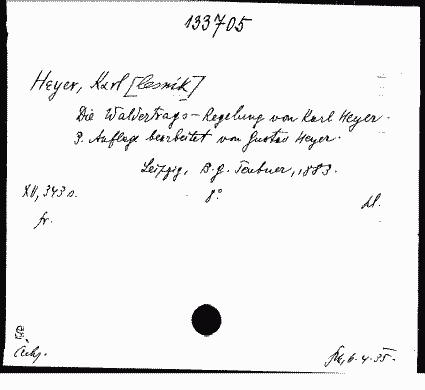 133705
Heyer, Karl [lesník]
Die Waldertrags-Regelung von Karl Heyer.
3. Auflage bearbeitet von Gustav Heyer.
Leipzig, B. G. Teubner, 1883.
XII, 343 s. 8°
fr.
6.4.35.